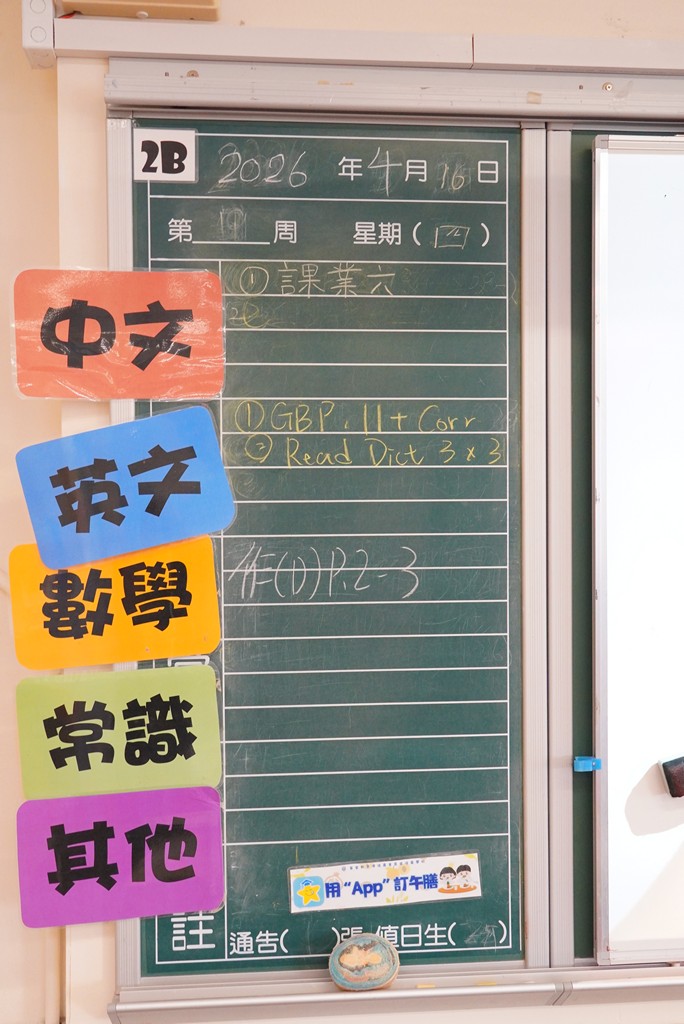 2B
2026 年 4 月 16 日
第 19 周 星期 ( 四 )
中文
① 課業六
英文
① GBP. 11 + Corr
② Read Dict 3 x 3
數學
作(D) P.2-3
常識
其他
用 “App” 訂午膳
註
通告( )張 值日生( )